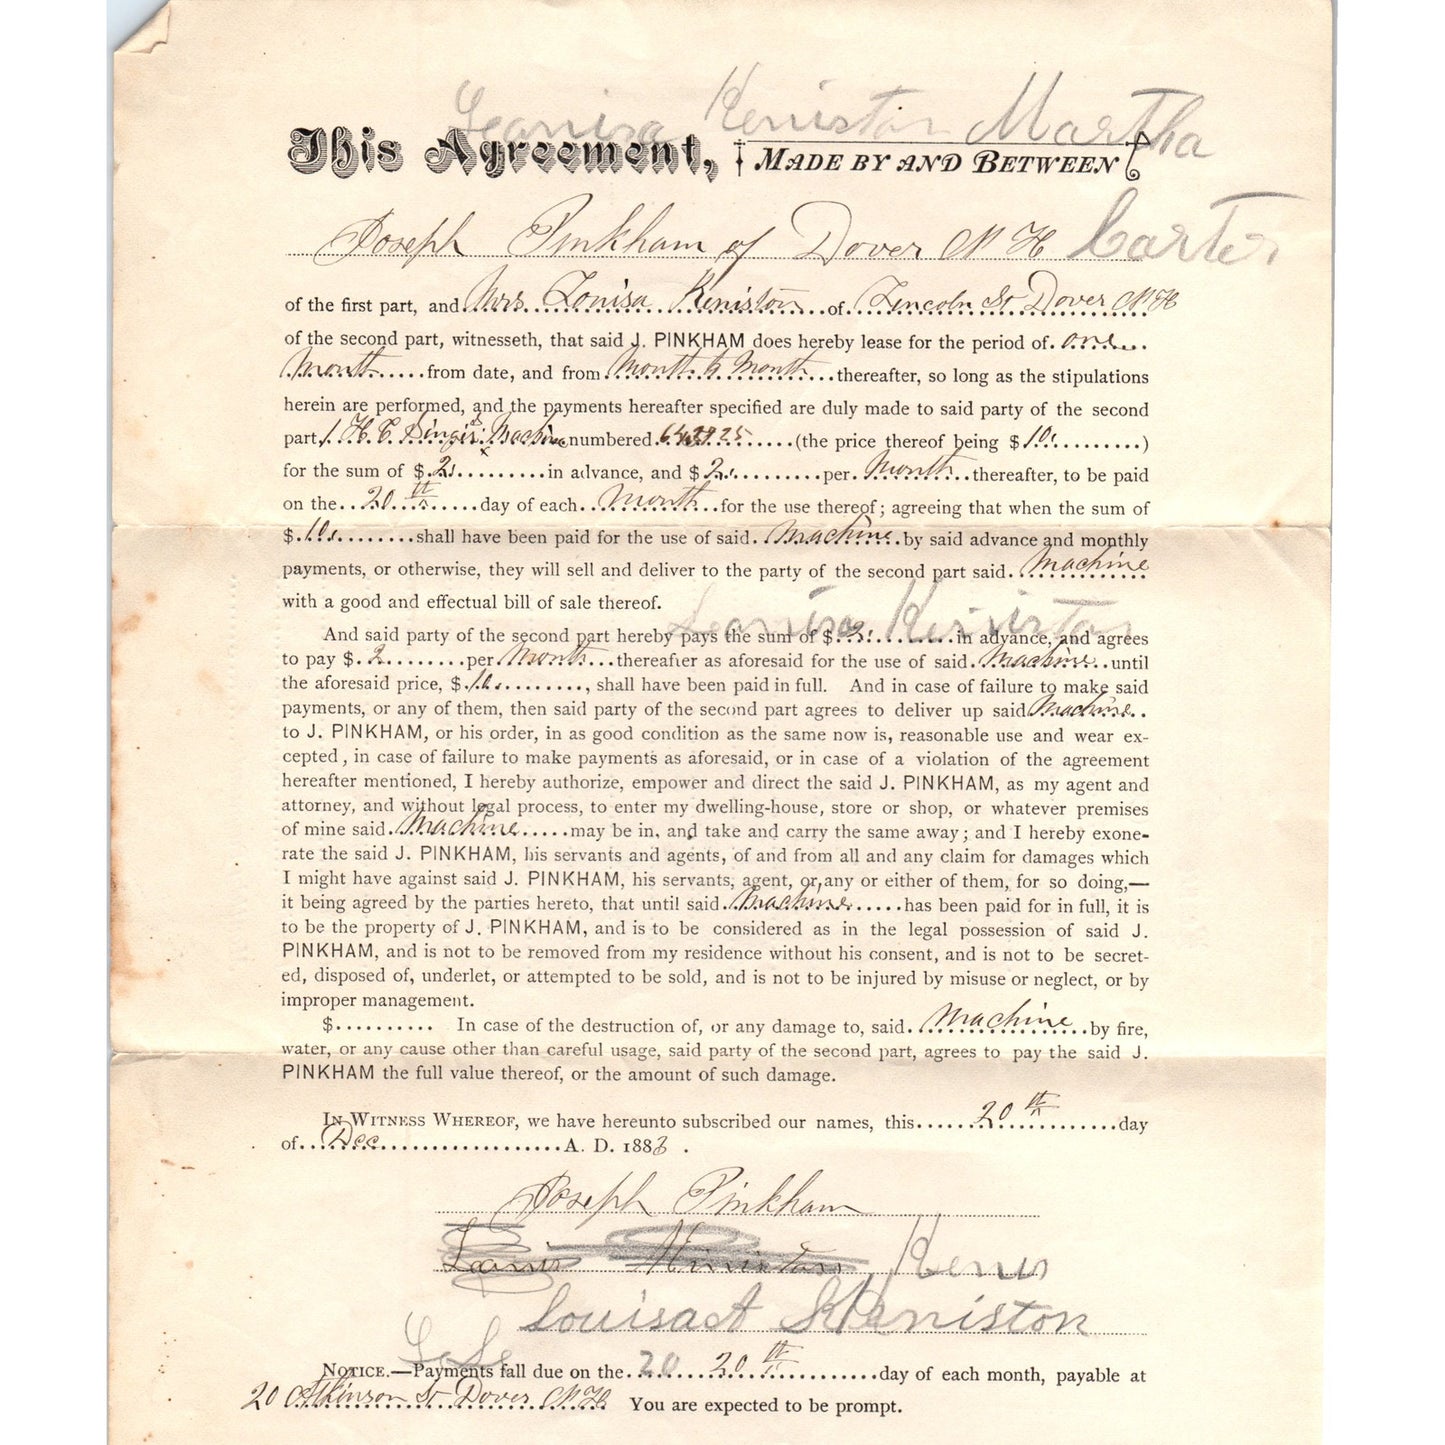 Leanisa Keniston Martha
This Agreement, MADE BY AND BETWEEN
Joseph Pinkham of Dover N H Carter
of the first part, and Mrs Louisa Keniston of Lincoln St Dover N H
of the second part, witnesseth, that said J. PINKHAM does hereby lease for the period of one
Month from date, and from Month to Month thereafter, so long as the stipulations
herein are performed, and the payments hereafter specified are duly made to said party of the second
part, 1 H. C. Singer Machine numbered (the price thereof being $10. )
for the sum of $2. in advance, and $2. per Month thereafter, to be paid
on the 20th day of each Month for the use thereof; agreeing that when the sum of
$10. shall have been paid for the use of said Machine by said advance and monthly
payments, or otherwise, they will sell and deliver to the party of the second part said Machine
with a good and effectual bill of sale thereof.
Leanisa Keniston
And said party of the second part hereby pays the sum of $2. in advance, and agrees
to pay $2 per Month thereafter as aforesaid for the use of said Machine until
the aforesaid price, $10. , shall have been paid in full. And in case of failure to make said
payments, or any of them, then said party of the second part agrees to deliver up said Machine
to J. PINKHAM, or his order, in as good condition as the same now is, reasonable use and wear ex-
cepted, in case of failure to make payments as aforesaid, or in case of a violation of the agreement
hereafter mentioned, I hereby authorize, empower and direct the said J. PINKHAM, as my agent and
attorney, and without legal process, to enter my dwelling-house, store or shop, or whatever premises
of mine said Machine may be in, and take and carry the same away; and I hereby exone-
rate the said J. PINKHAM, his servants and agents, of and from all and any claim for damages which
I might have against said J. PINKHAM, his servants, agent, or any or either of them, for so doing,—
it being agreed by the parties hereto, that until said Machine has been paid for in full, it is
to be the property of J. PINKHAM, and is to be considered as in the legal possession of said J.
PINKHAM, and is not to be removed from my residence without his consent, and is not to be secret-
ed, disposed of, underlet, or attempted to be sold, and is not to be injured by misuse or neglect, or by
improper management.
$.......... In case of the destruction of, or any damage to, said Machine by fire,
water, or any cause other than careful usage, said party of the second part, agrees to pay the said J.
PINKHAM the full value thereof, or the amount of such damage.
IN WITNESS WHEREOF, we have hereunto subscribed our names, this 20th day
of Dec A. D. 1883 .
Joseph Pinkham
Kenis
Louisa A Keniston
NOTICE.—Payments fall due on the 20 20th day of each month, payable at
20 Atkinson St Dover N H You are expected to be prompt.